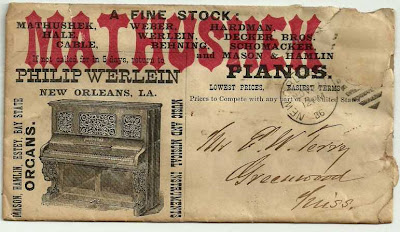 A FINE STOCK:
MATHUSHEK
MATHUSHEK, WEBER HARDMAN,
HALE, WERLEIN, DECKER BROS.
CABLE, BEHNING, SCHOMACKER,
and MASON & HAMLIN
If not called for in 5 days, return to
PHILIP WERLEIN
PIANOS.
NEW ORLEANS, LA.
LOWEST PRICES, EASIEST TERMS
Prices to Compete with any part of the United States
MASON, HAMLIN ESTEY BAY STATE
ORGANS.
NEW
86
Mr P. W. Torry
Greenwood
Miss.